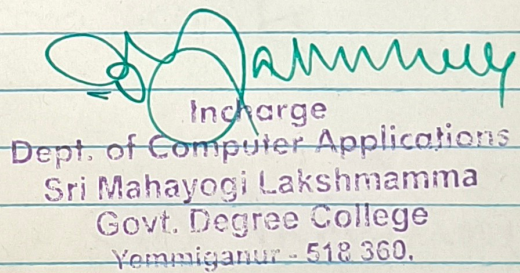 Incharge
Dept. of Computer Applications
Sri Mahayogi Lakshmamma
Govt. Degree College
Yemmiganur - 518 360.